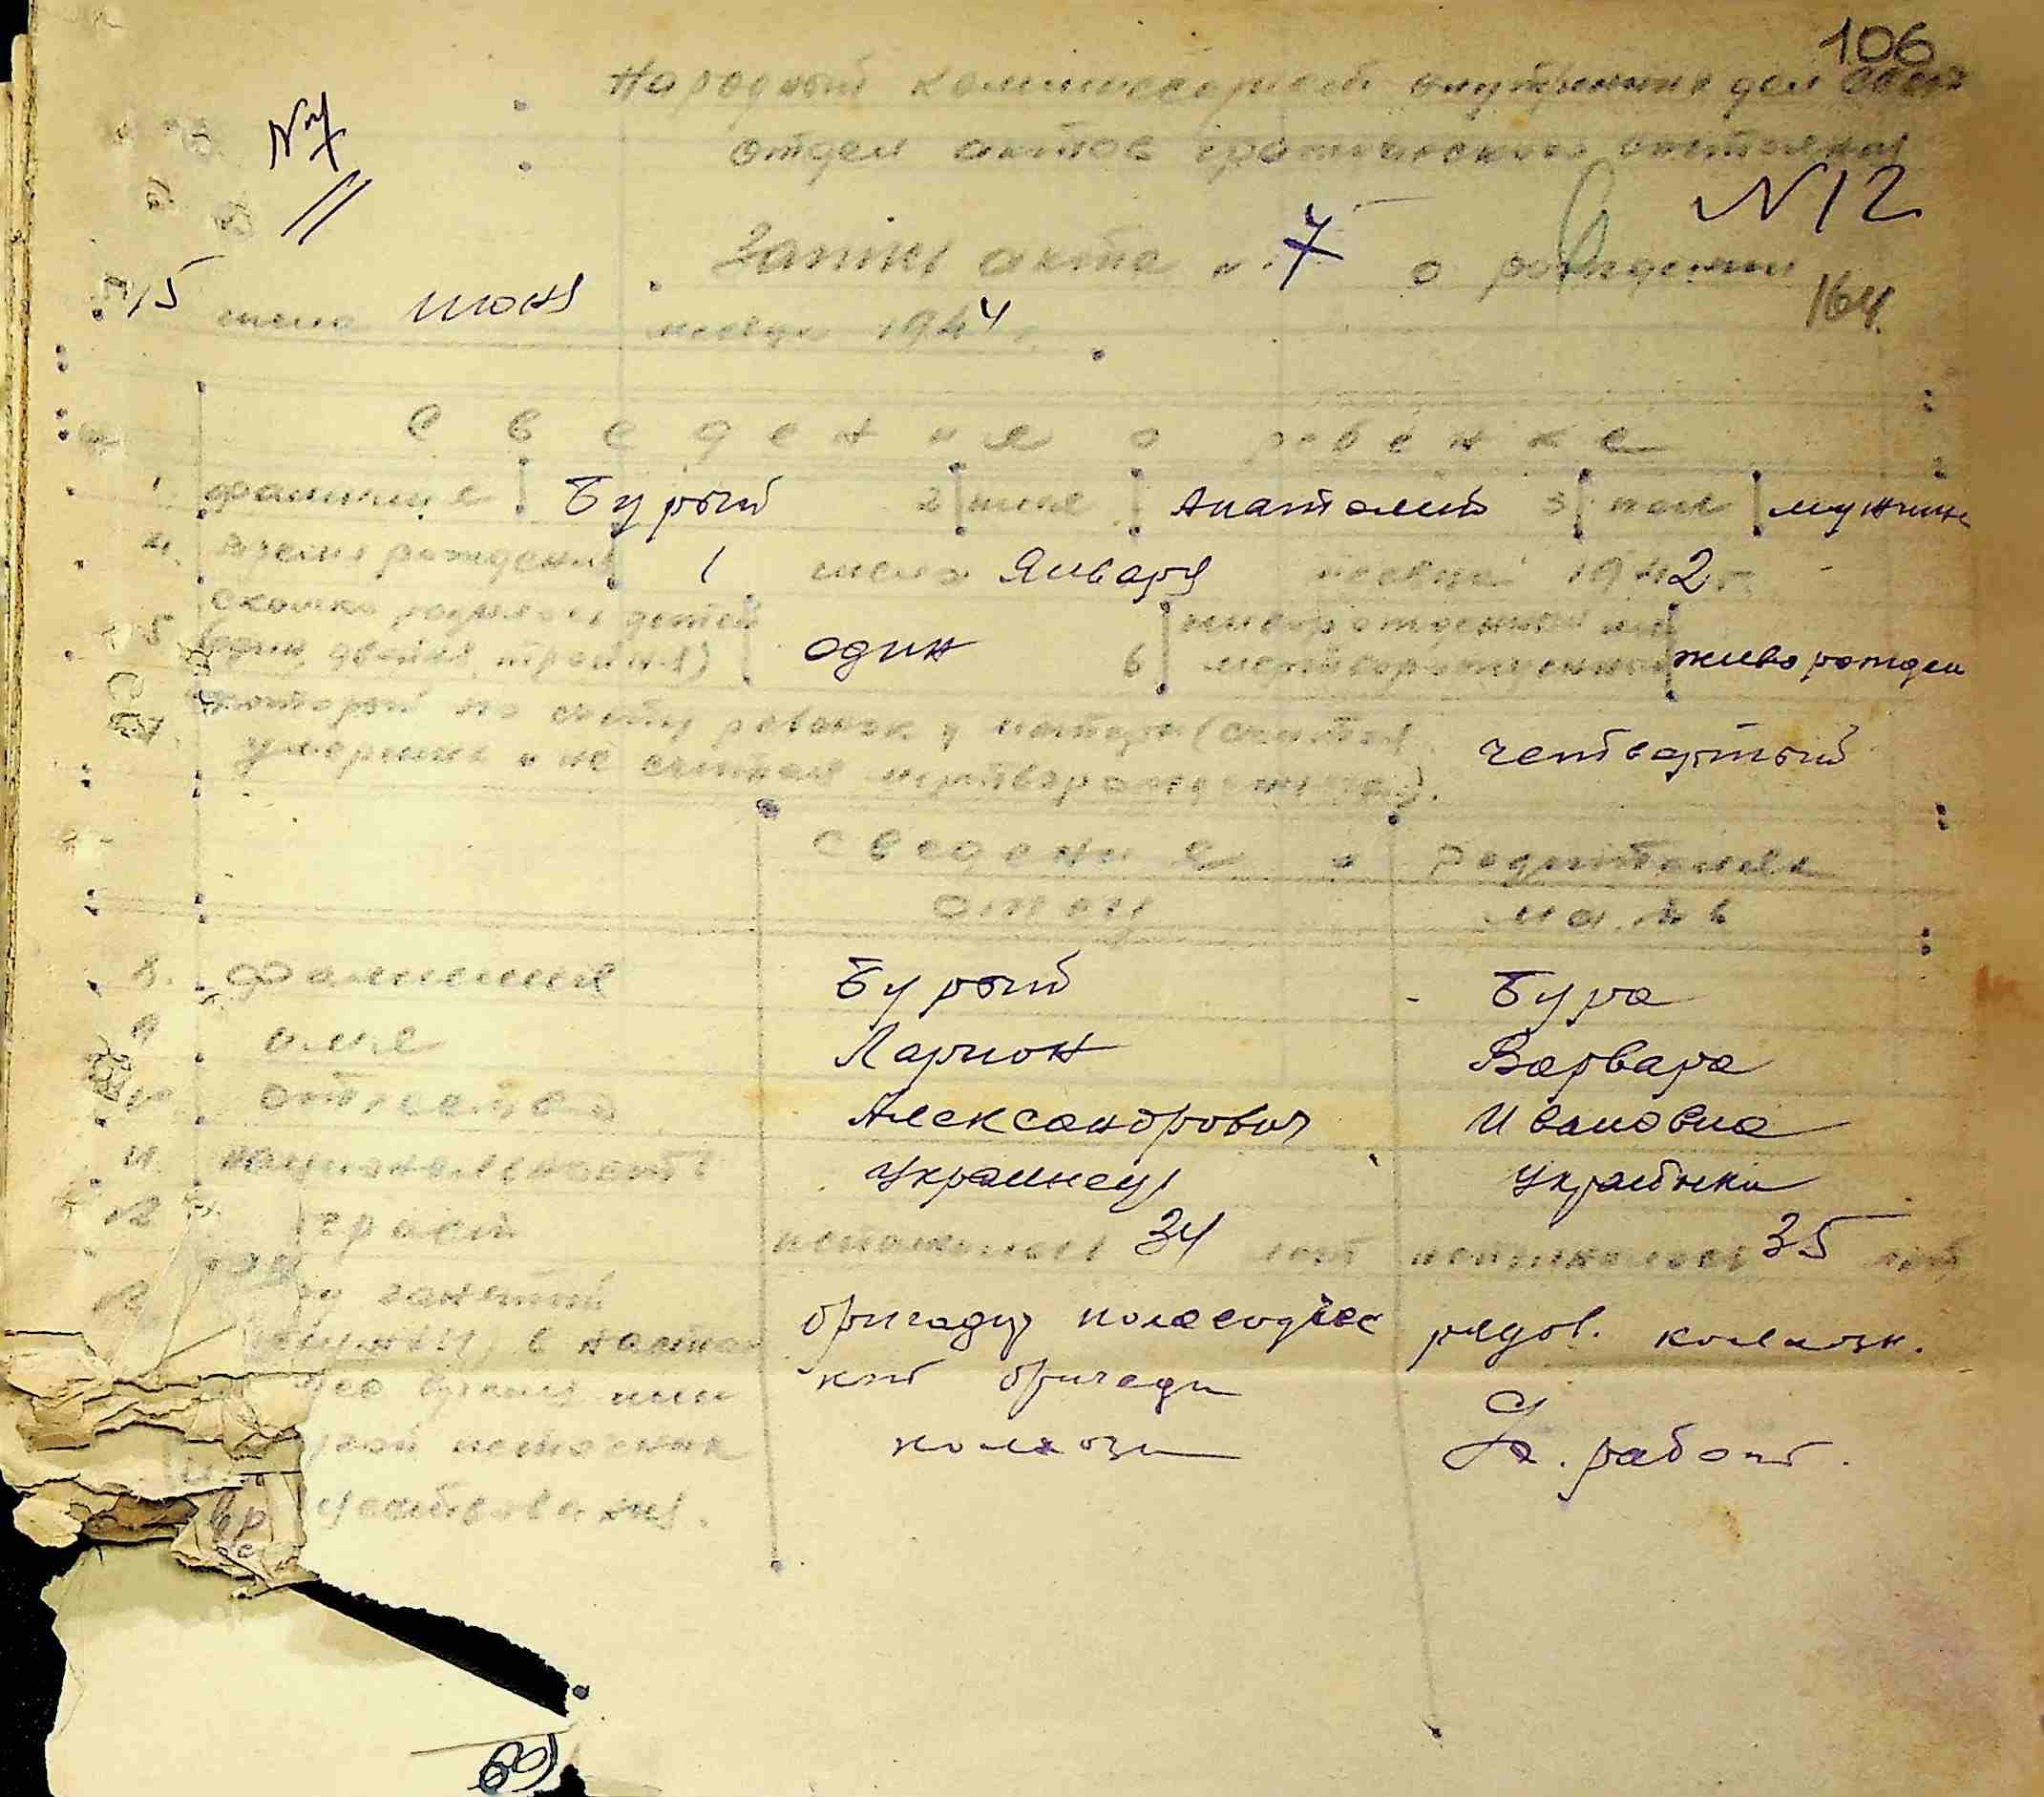 106
Народный комиссариат внутренних дел СССР
№ 7
отдел актов гражданского состояния
№ 12
Запись акта № 7 о рождении
164.
15 числа июня месяца 1944 г.
Сведения о ребёнке
1. фамилия Бурый 2 имя Анатолий 3 пол мужчина
4. время рождения 1 числа Января месяца 1942 г.
5 сколько родилось детей (один, двойня, тройня) один 6 живорожденный или мертворожденный живорожден
7. который по счету ребенок у матери (считая
умерших и не считая мертворожденных). четвертый
сведения о родителях
отец мать
8. фамилия Бурый Бура
9 имя Ларион Варвара
10 отчество Александрович Ивановна
11. национальность Украинец Украинка
12 исполнилось 34 лет исполнилось 35 лет
занятий бригадир рядов. колхозн.
в настоя кой бригади
время или колхозн
источник работ.
существования.